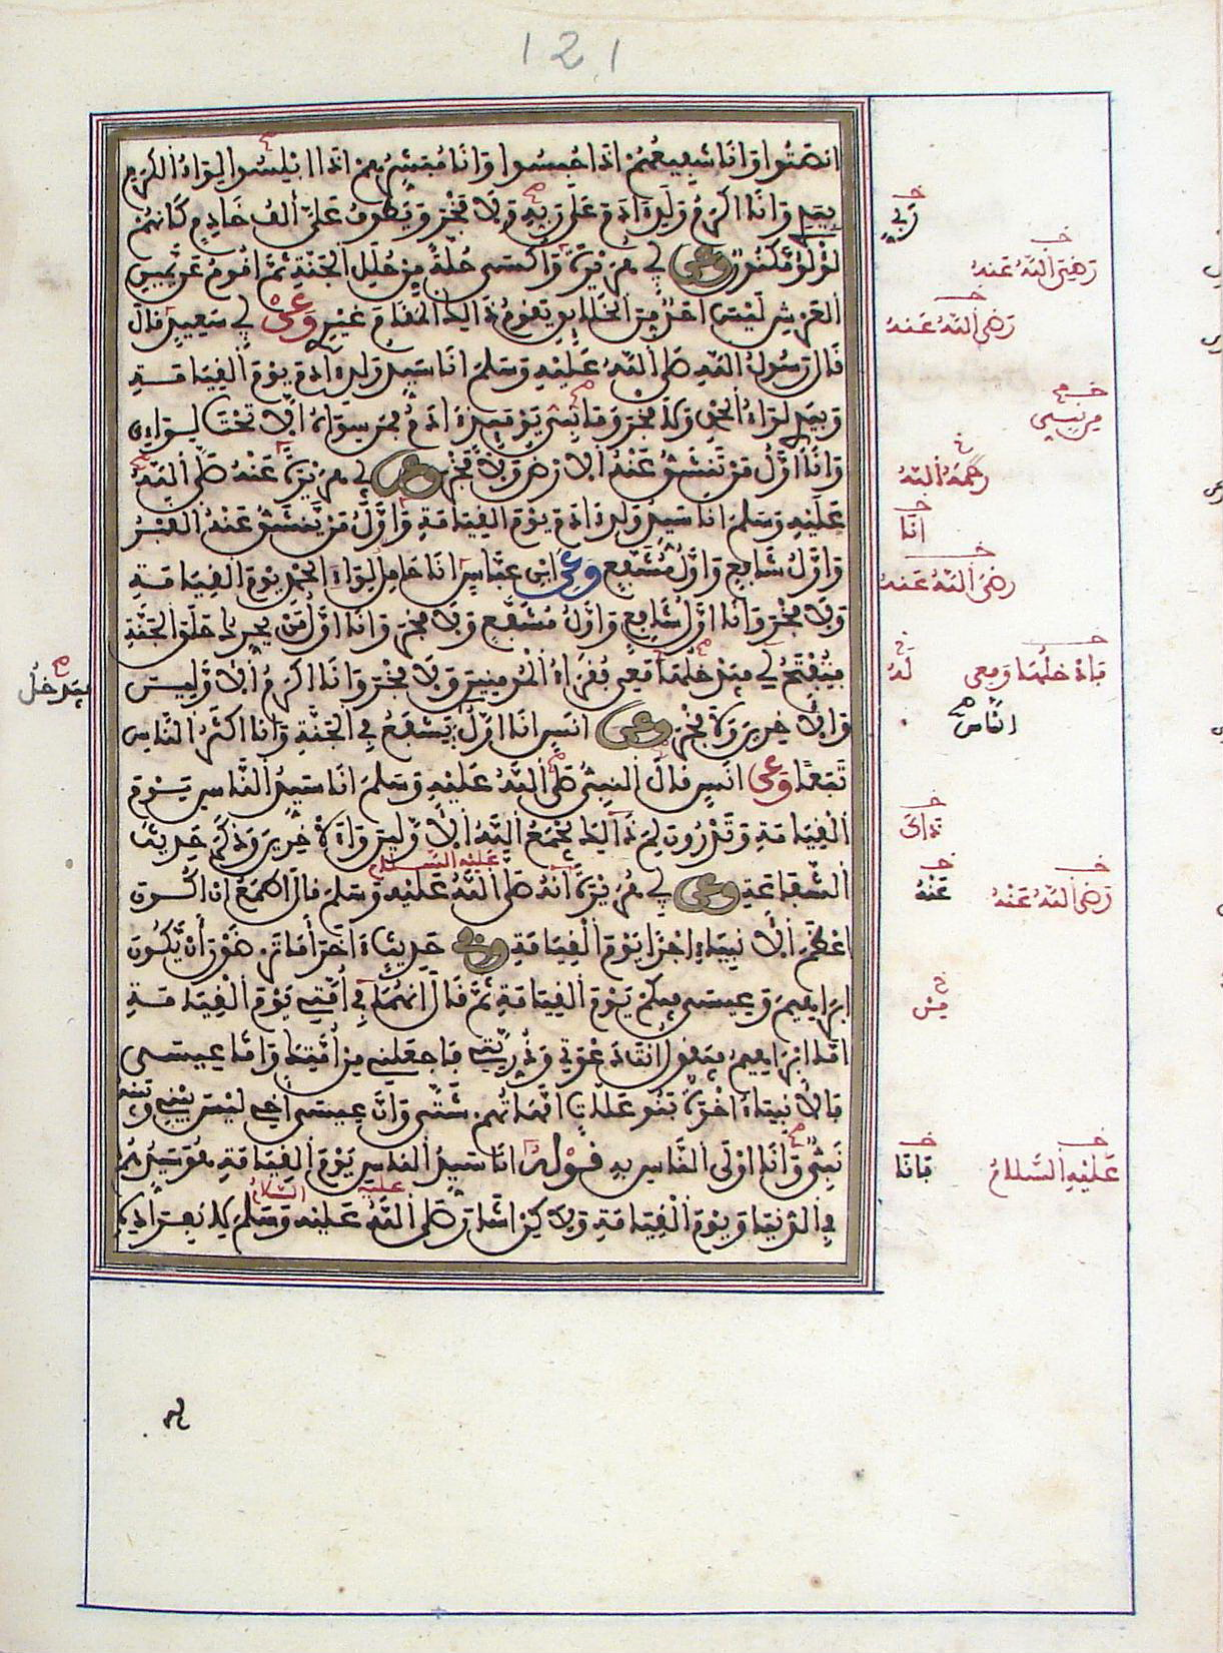 121
انصتوا وانا شفيعهم اذا حبسوا وانا مبشرهم اذا ابلسوا لواء الكرم
بيدي وانا اكرم ولد ادم على ربه ولا فخر ويطوف علي ألف خادم كانهم
لؤلؤ مكنون وعن أبي هريرة وأكسى حلة من حلل الجنة ثم اقوم عن يمين
العرش ليس احد من الخلايق يقوم ذالك المقام غيري وعن أبي سعيد قال
قال رسول الله صلى الله عليه وسلم انا سيد ولد ادم يوم القيامة
وبيدي لواء الحمد ولا فخر وما نبي يومئذ ادم فمن سواه الا تحت لواءي
وانا اول من تنشق عنه الارض ولا فخر وعن أبي هريرة عنه صلى الله
عليه وسلم انا سيد ولد ادم يوم القيامة واول من ينشق عنه القبر
واول شافع واول مشفع وعن ابن عباس انا حامل لواء الحمد يوم القيامة
ولا فخر وانا اول شافع واول مشفع ولا فخر وانا اول من يحرك حلق الجنة
فيفتح لي فيدخلها معي فقراء المومنين ولا فخر وانا اكرم الاولين
والاخرين ولا فخر وعن انس انا اول من يشفع في الجنة وانا اكثر الناس
تبعا وعن انس قال النبي صلى الله عليه وسلم انا سيد الناس يوم
القيامة وتدرون لم ذالك يجمع الله الاولين والاخرين وذكر حديث
الشفاعة وعن أبي هريرة انه صلى الله عليه وسلم قال اطمع ان اكون
اعظم الانبياء اجرا يوم القيامة وفي حديث اخر أما ترضون أن يكون
ابراهيم وعيسى فيكم يوم القيامة ثم قال انهما في أمتي يوم القيامة
اما ابراهيم فيقول انت دعوتي وذريتي فاجعلني من أمتك واما عيسى
فالانبياء اخوة بنو علات امهاتهم شتى وان عيسى أخي ليس بيني وبينه
نبي وانا اولى الناس به قوله انا سيد الناس يوم القيامة هو سيدهم
في الدنيا ويوم القيامة ولاكن اشار صلى الله عليه وسلم
عليه السلام
عليه السلام
ربي
رضي الله عنه
رضي الله عنه
رحمه الله
انا
رضي الله عنه
له
فادخلها ومعي
فيدخل
الناس
ذاك
عنه
رضي الله عنه
من
فانا
عليه السلام